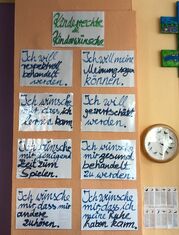 Kinderrechte
Kinderwünsche
Ich will
respektvoll
behandelt
werden.
Ich will meine
Meinung sagen
können.
Ich wünsche
mir, dass ich
lernen kann.
Ich will
wertgeschätzt
werden.
Ich wünsche
mir genügend
Zeit zum
Spielen.
Ich wünsche
mir gesund
behandelt
zu werden.
Ich wünsche
mir, dass mir
andere
zuhören.
Ich wünsche
mir, dass ich
meine Ruhe
haben kann.